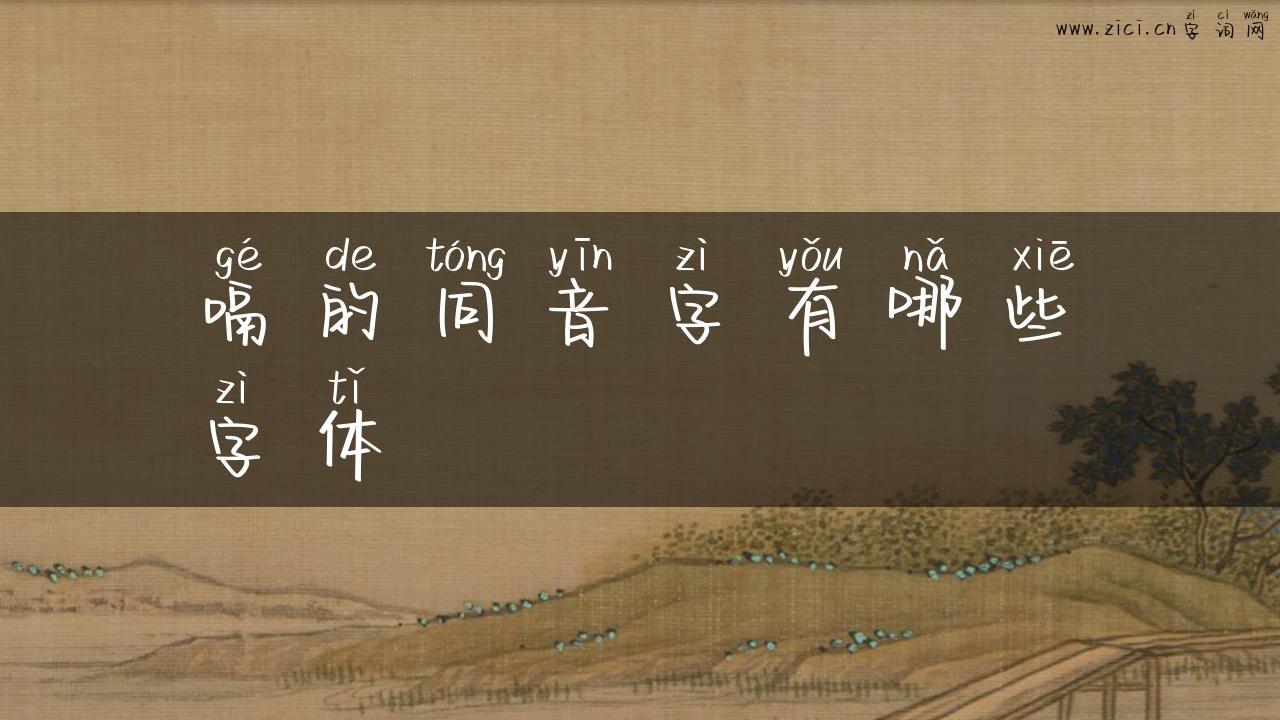 zì cí wǎng
www.zici.cn 字词网
gé de tóng yīn zì yǒu nǎ xiē
嗝的同音字有哪些
zì tǐ
字体